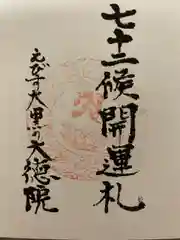 七十二候開運札
えびす大黒の大徳院